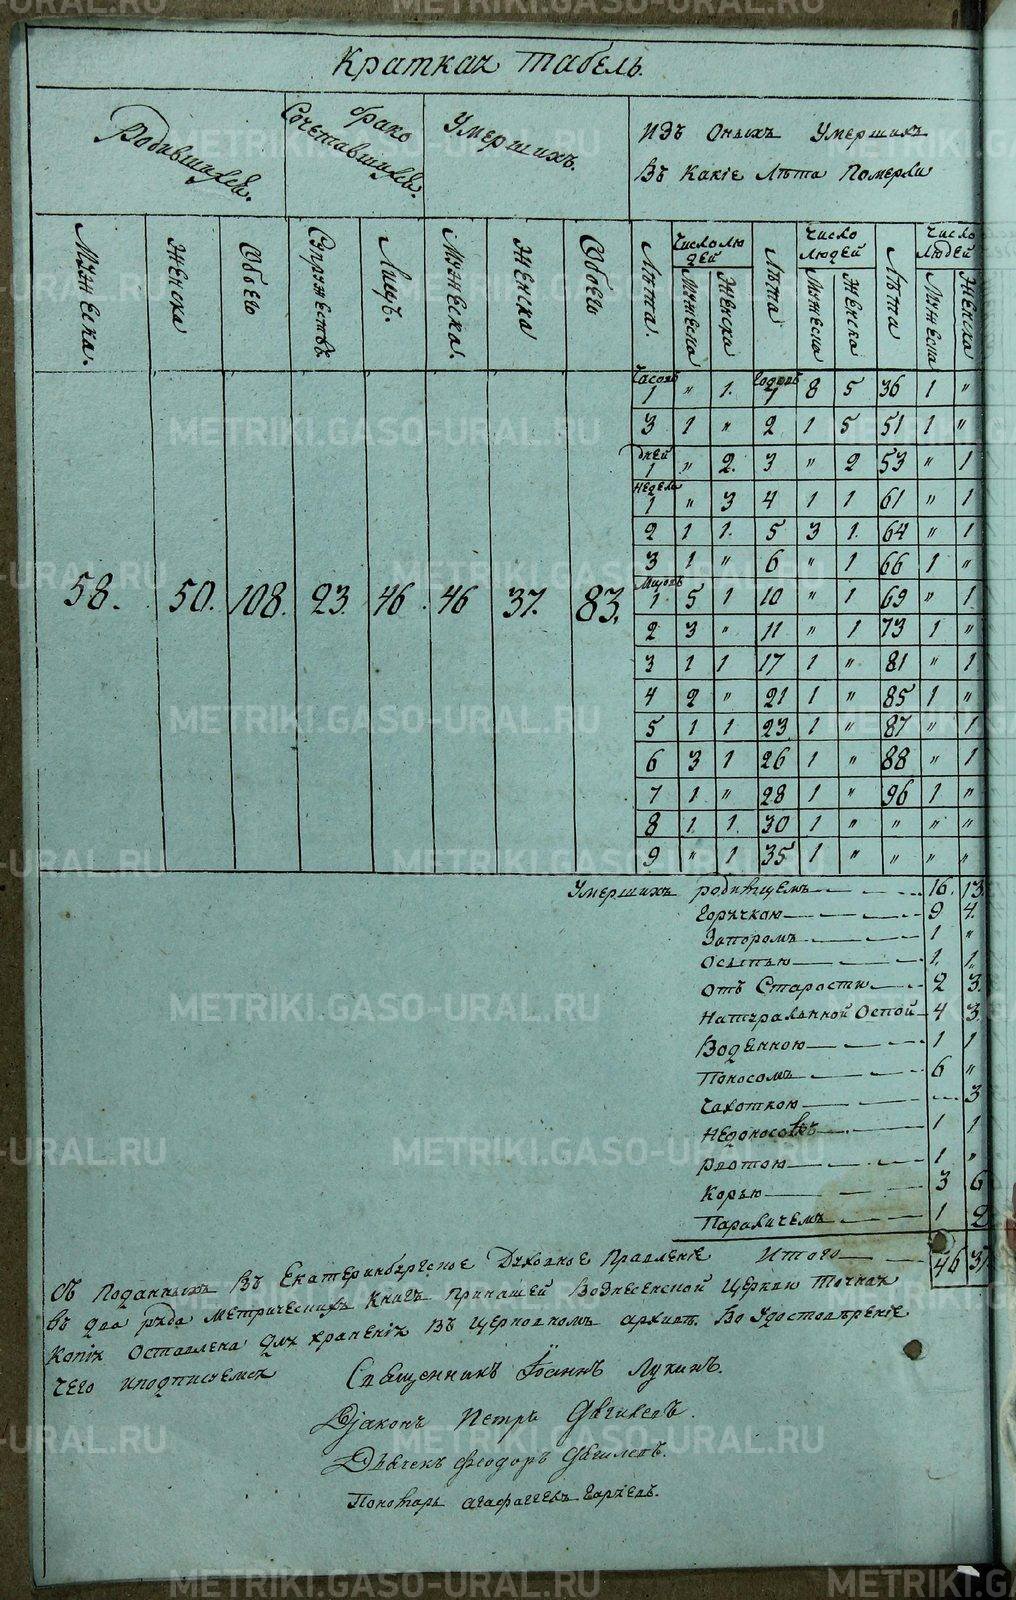 Краткая табель.
Родившихся.
Брако Сочетавшихся.
Умерших.
Изъ Оныхъ Умершихъ
Въ Какіе Лѣта Померли
Мужеска.
Женска
Обоего
Супружествъ
Лицъ.
Мужеска.
Женска
Обоего
Лѣта.
Число людей
Мужеска
Женска
Лѣта
Число людей
Мужеска
Женска
Лѣта
Число людей
Мужеска
Женска
58. 50. 108. 23 46 46 37. 83.
Часовъ 1 " 1. Годовъ 1 8 5 36 1 "
3 1 " 2 1 5 51 1 "
дней 1 " 2. 3 " 2 53 " 1
недель 1 " 3 4 1 1 61 " 1
2 1 1. 5 3 1. 64 " 1
3 1 " 6 " 1 66 1 "
Месяцъ 1 5 1 10 " 1 69 " 1.
2 3 " 11 " 1 73 1 "
3 1 1 17 1 " 81 " 1
4 2 " 21 1 " 85 1 "
5 1 1 23 1 " 87 " 1
6 3 1 26 1 " 88 " 1
7 1 " 28 1 " 96 1 "
8 1. 1. 30 1 " " " "
9 " 1 35 1 " " " "
Умершихъ родимцемъ 16. 13.
Горячкою 9 4.
Запоромъ 1 "
Осыпью 1. 1.
отъ Старости 2 3.
Натуральной Оспой 4 3.
Водянною 1 1
Поносомъ 6 "
Чахоткою 3
Недоносокъ 1 1
Рвотою 1 "
Корью 3 6
Параличемъ 1 2
Итого 46 37
Съ Поданныхъ Въ Екатеринбургское Духовное Правленіе
въ два ряда Метрическихъ Книгъ При нашей Вознесенской Церкви точная
Копія Оставлена для хранения въ Церковномъ архивѣ. Во Удостовѣреніе
чего и подписуемся
Священникъ Іоаннъ Лукинъ.
Діаконъ Петръ
Дьячекъ Феодоръ
Пономарь
METRIKI.GASO-URAL.RU